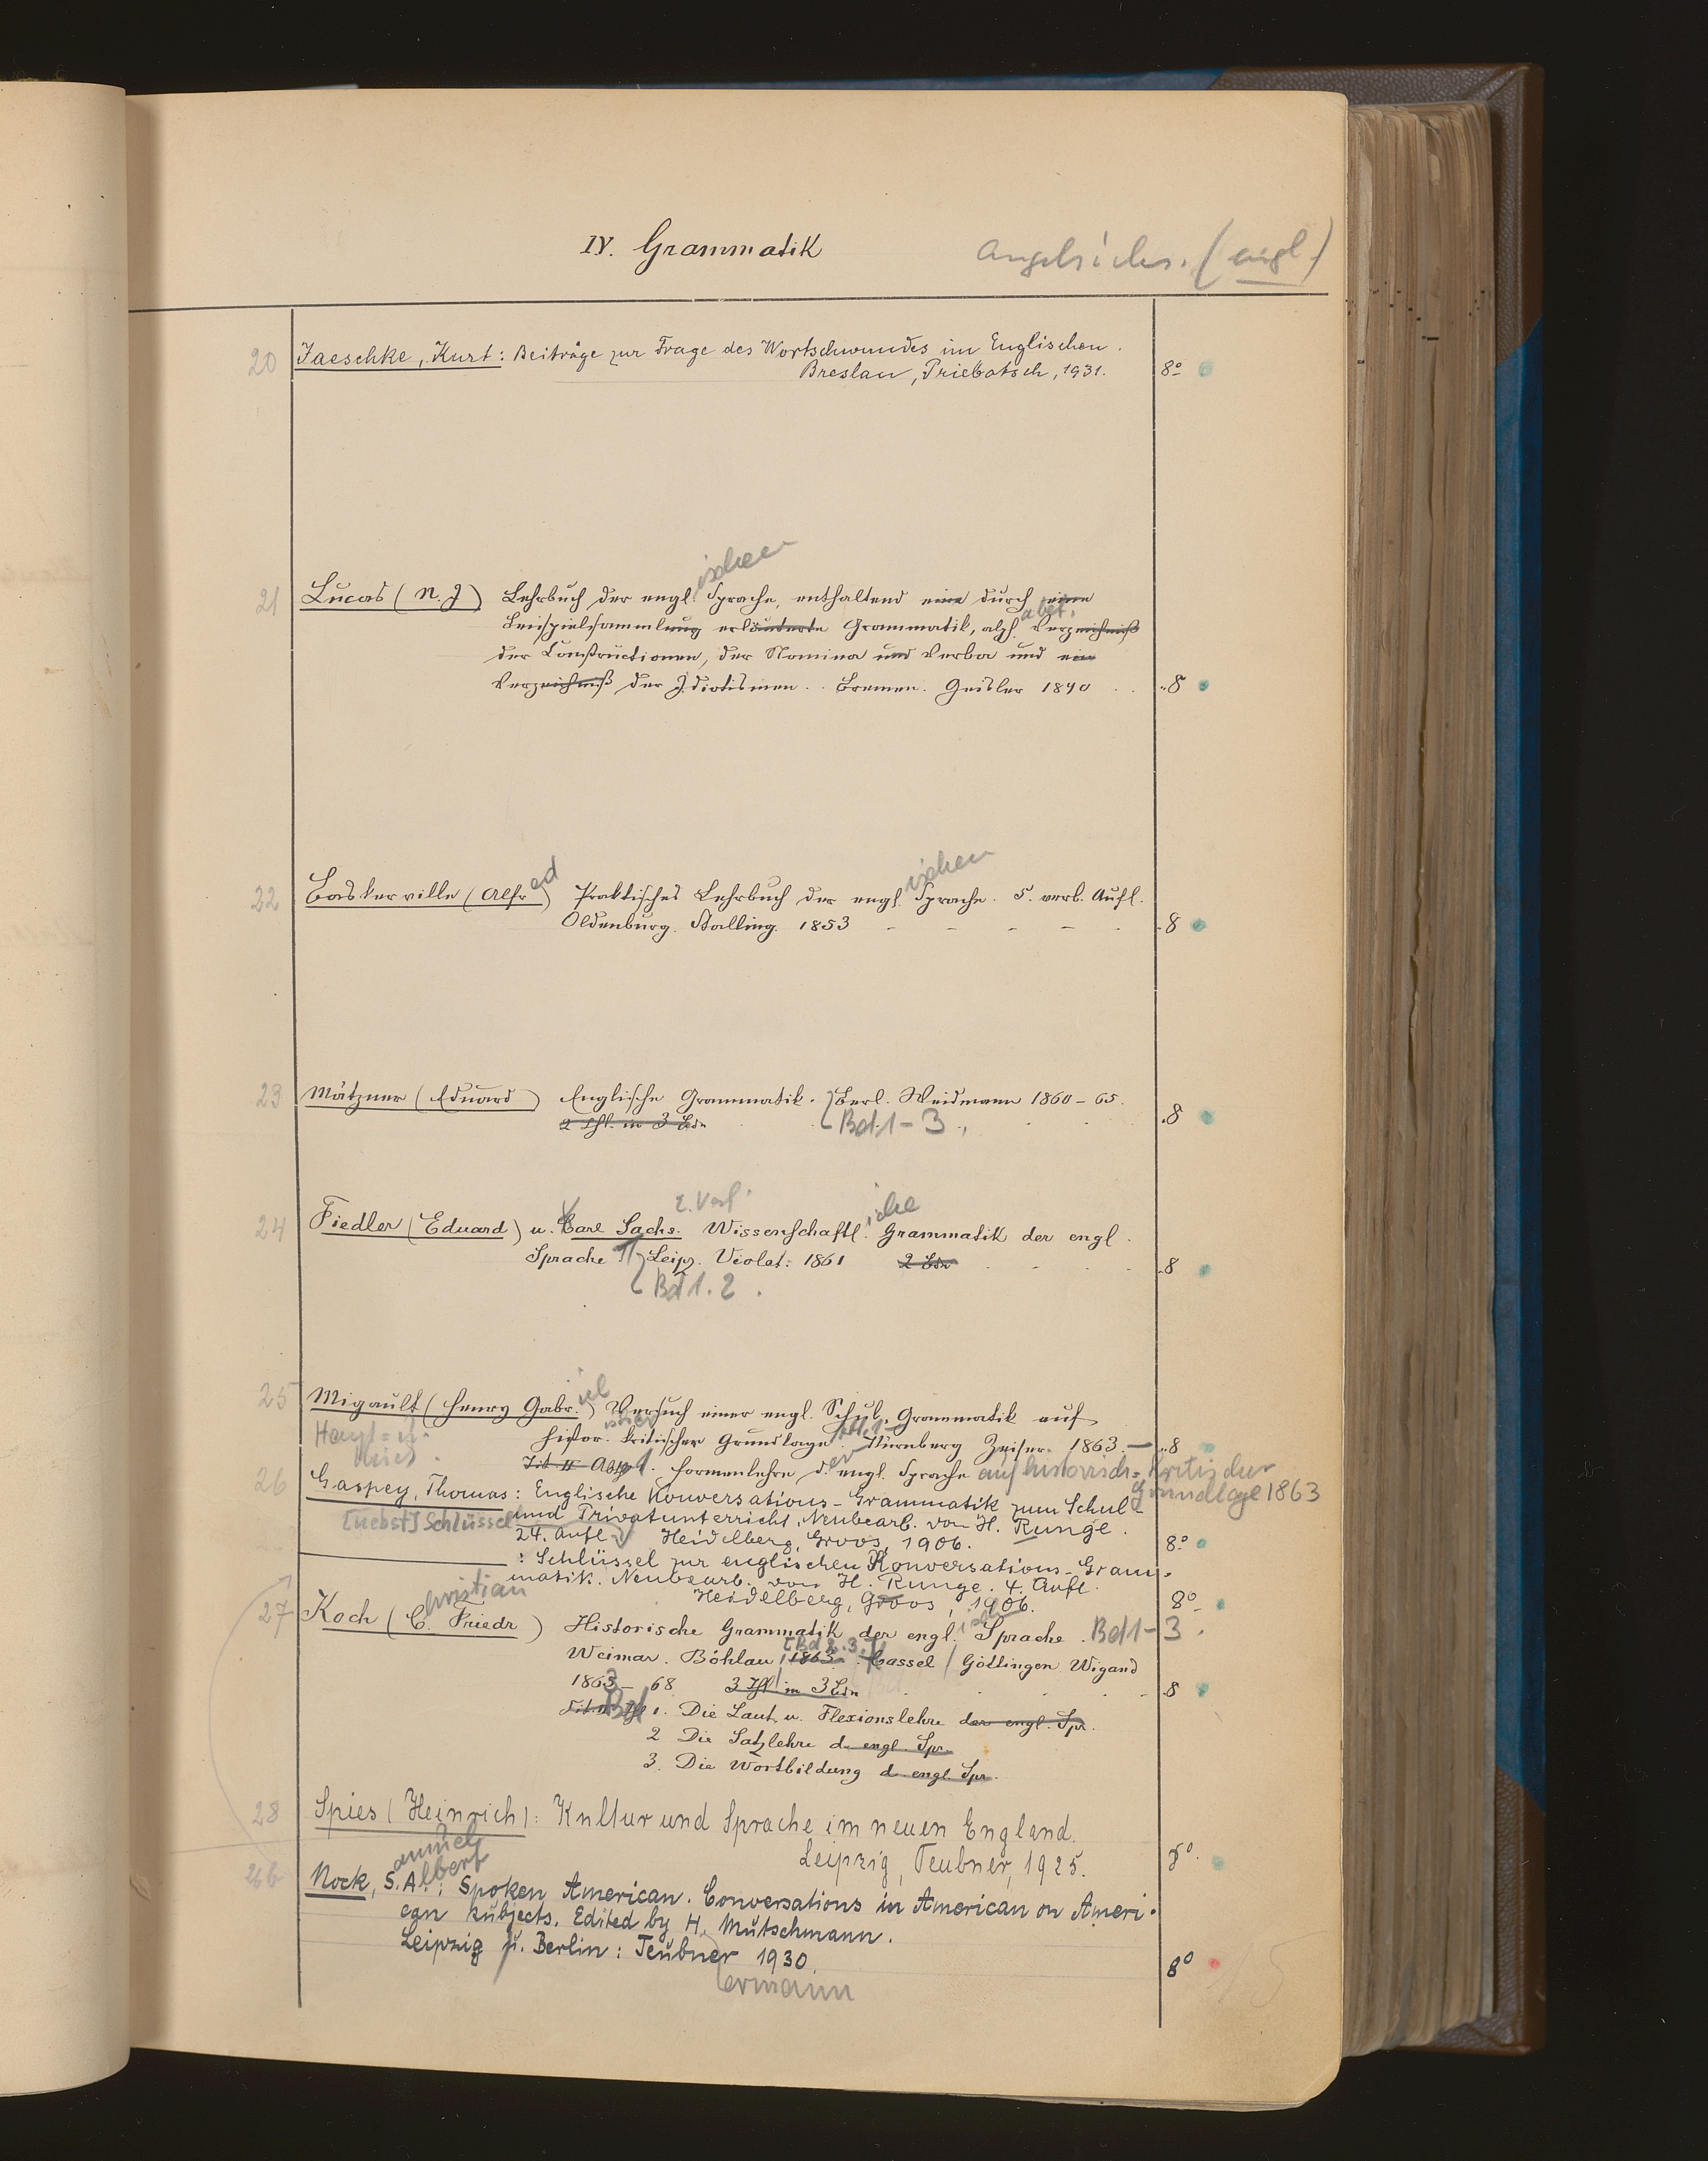 IV. Grammatik
Angelsächs. (engl.)
20 Jaeschke, Kurt: Beiträge zur Frage des Wortschwundes im Englischen.
Breslau, Priebatsch, 1931. 8°
ischen
21 Lucas (N. J) Lehrbuch der engl. Sprache, enthaltend eine durch eine
abet.
Beispielsammlung erläuterte Grammatik, alph. Verzeichniß
der Constructionen, der Nomina und Verba und ein
Verzeichniß der Idiotismen. Bremen. Geisler 1840 8
ed ischen
22 Baskerville (Alfr) Praktisches Lehrbuch der engl. Sprache. 5. verb. Aufl.
Oldenburg. Stalling. 1853 8
23 Mätzner (Eduard) Englische Grammatik. Berl. Weidmann 1860-65.
2 Thl. in 3 Bdn Bd 1-3. 8
2. Verf. ische
24 Fiedler (Eduard) u. Carl Sachs. Wissenschaftl. Grammatik der engl.
Sprache Leipz. Violet: 1861 2 Bde 8
Bd 1. 2.
iel
25 Migault (Henry Gabr.) Versuch einer engl. Schul-Grammatik auf
histor. kritischer Grundlage. Nürnberg Zeiser. 1863. 8
1. Formenlehre d. engl. Sprache auf historisch-kritischer
Grundlage 1863
26 Gaspey, Thomas: Englische Konversations-Grammatik zum Schul-
[nebst] Schlüssel und Privatunterricht. Neubearb. von H. Runge.
24. Aufl. Heidelberg, Groos, 1906. 8°
: Schlüssel zur englischen Konversations-Gram-
matik. Neubearb. von H. Runge. 4. Aufl.
Heidelberg, Groos, 1906. 8°
hristian
27 Koch (C. Friedr) Historische Grammatik der engl. Sprache. Bd 1-3.
[Bd 2. 3.]
Weimar. Böhlau 1863. Cassel / Göttingen Wigand
1863-68 3 Thl in 3 Bdn 8
Bd 1. Die Laut u. Flexionslehre der engl. Spr.
2 Die Satzlehre d. engl. Spr.
3. Die Wortbildung d. engl. Spr.
28 Spies (Heinrich): Kultur und Sprache im neuen England.
Leipzig, Teubner, 1925. 8°
amuel
lbert
26b Nock, S.A.: Spoken American. Conversations in American on Ameri-
can subjects. Edited by H. Mutschmann.
Leipzig u. Berlin: Teubner 1930. 8°
ermann